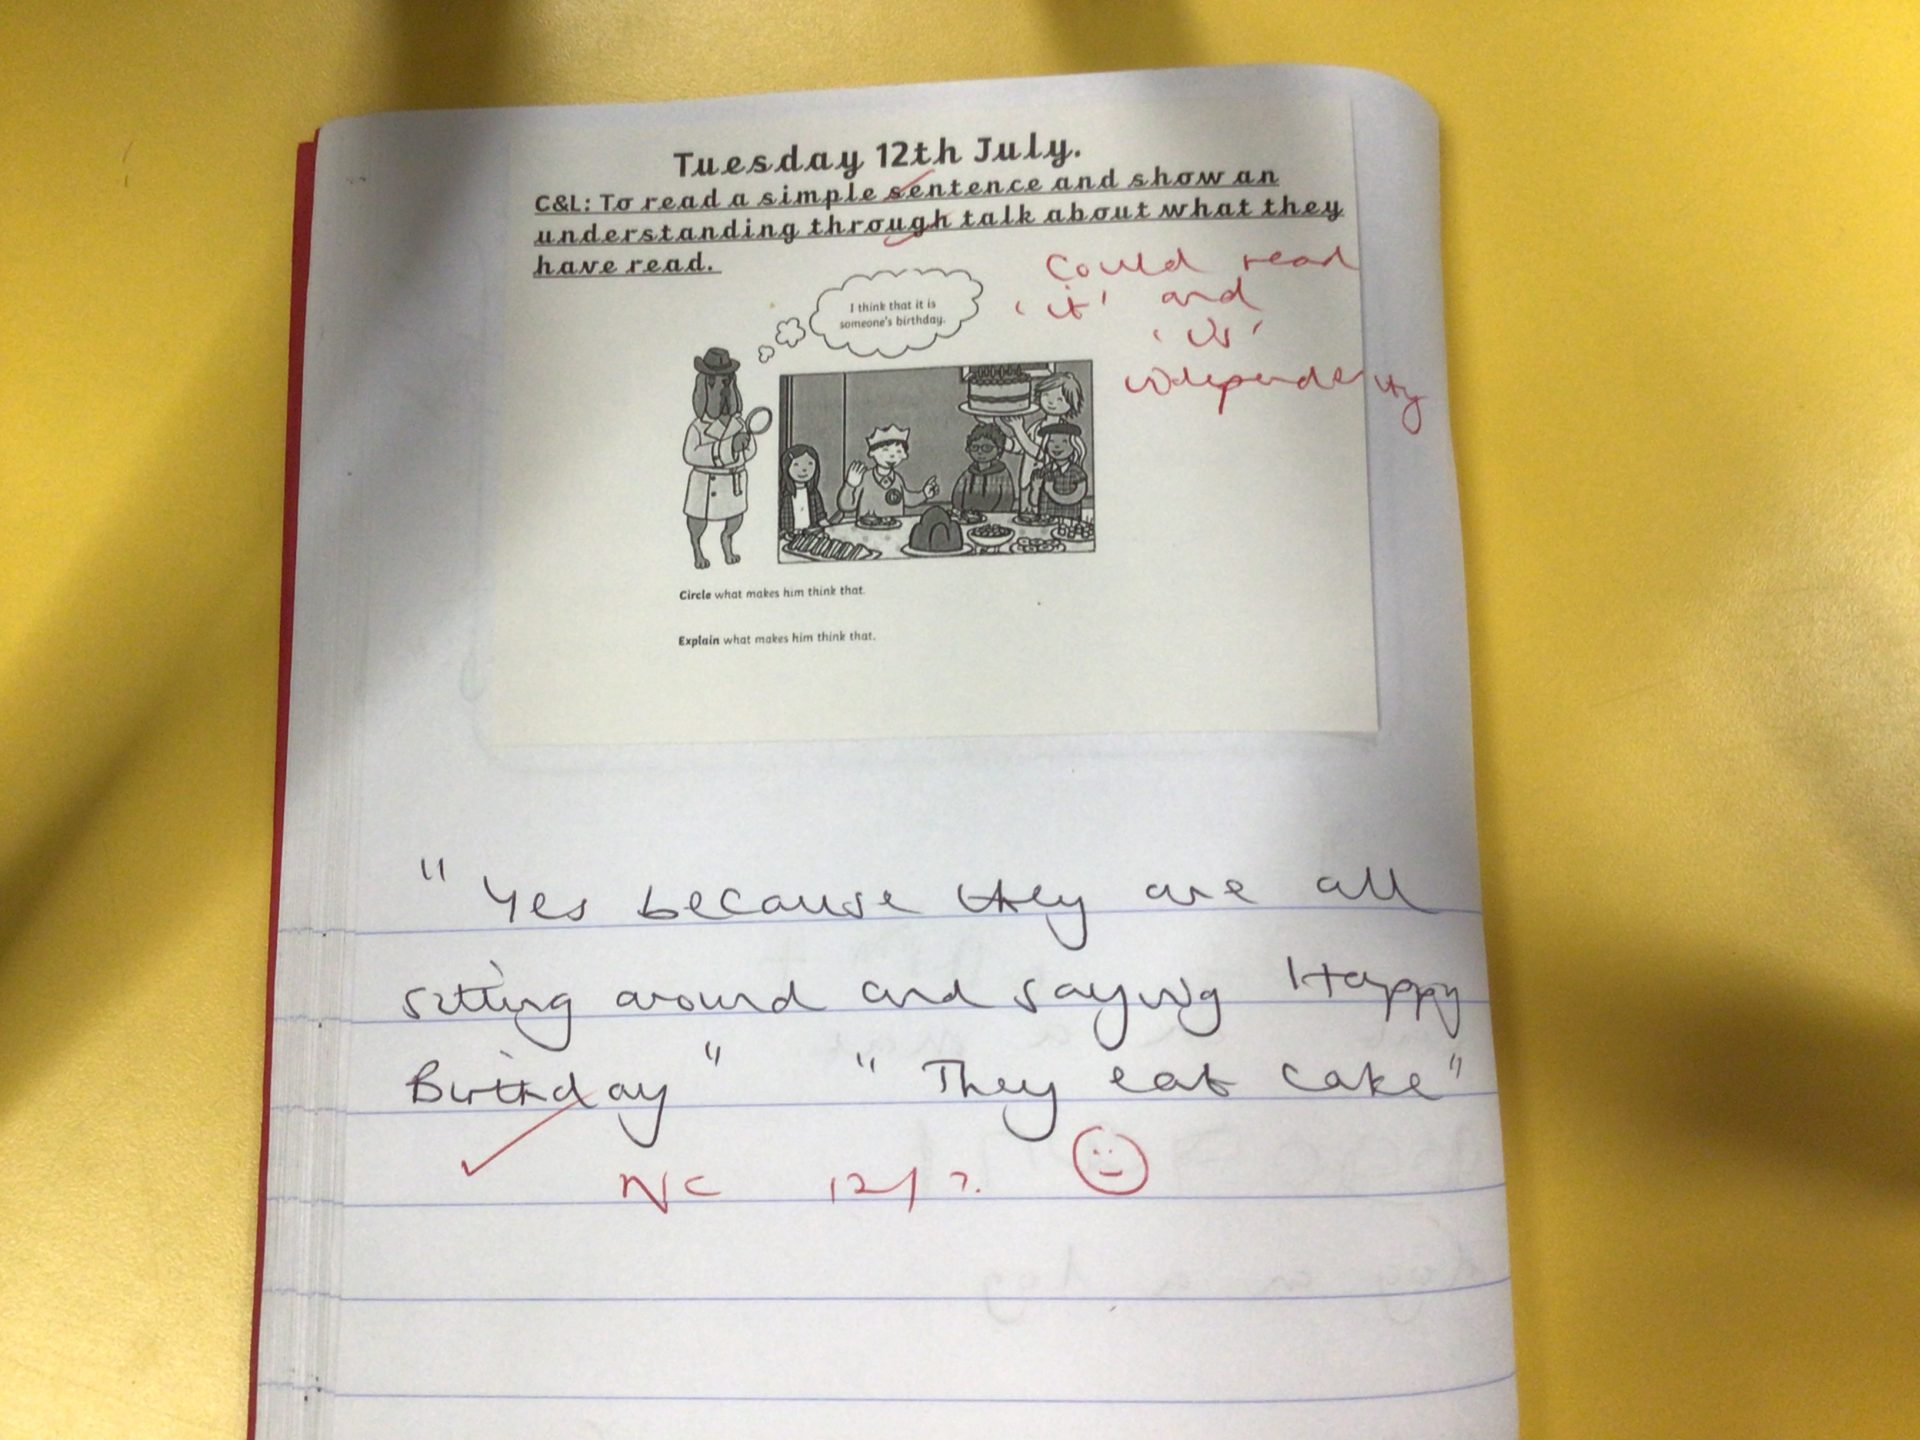 Tuesday 12th July.
C&L: To read a simple sentence and show an
understanding through talk about what they
have read.
Could read
'it' and
'is'
independently
I think that it is
someone's birthday.
Circle what makes him think that.
Explain what makes him think that.
"Yes because they are all
sitting around and saying Happy
Birthday" "They eat cake"
NC 12/7.